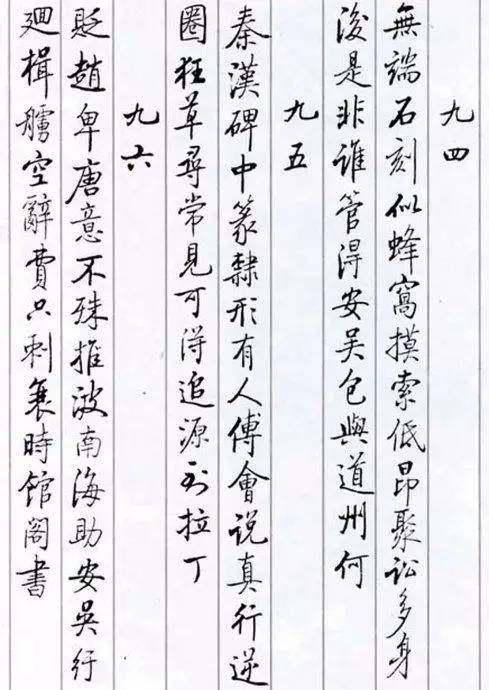 九四
無端石刻似蜂窩摸索低昂聚訟多身
後是非誰管得安吳包與道州何
九五
秦漢碑中篆隸形有人傅會說真行逆
圈狂草尋常見可得追源到拉丁
九六
貶趙卑唐意不殊推波南海助安吳紆
迴楫艣空辭費只剩衰時館閣書